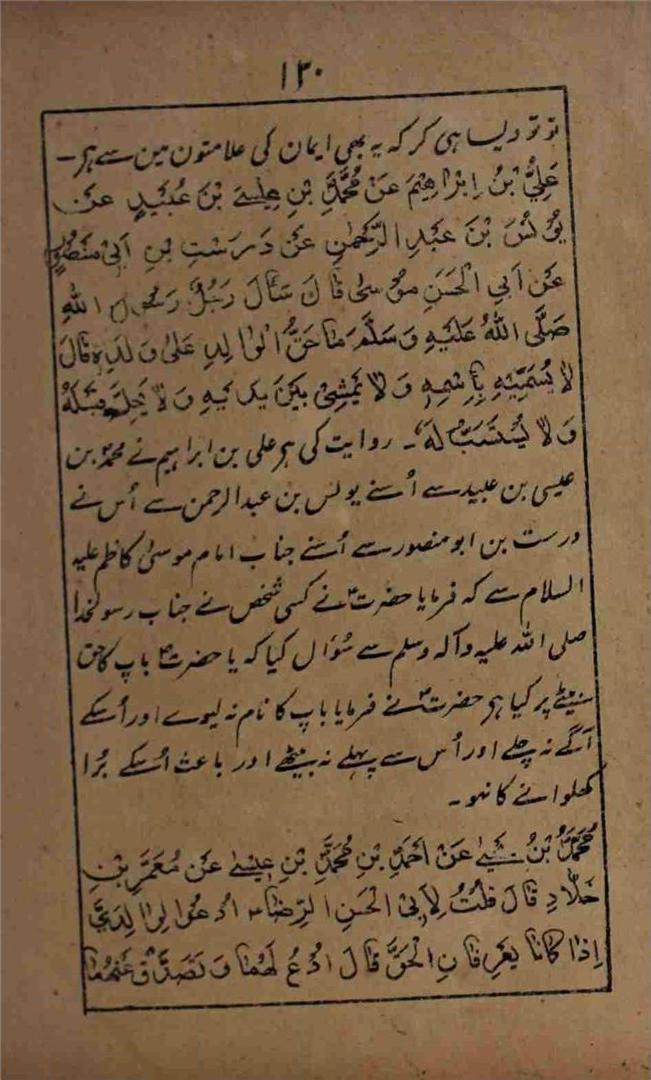 ۱۳۰
تو تو ویسا ہی کر کہ یہ بھی ایمان کی علامتون مین سے ہر -
عَلِيُّ بْنُ اِبْرَاهِيْمَ عَنْ مُحَمَّدِ بْنِ عِيْسٰے بْنَ عُبَيْدٍ عَنْ
يُوْنُسَ بْنَ عَبْدِ الرَّحْمٰنِ عَنْ دَرَسْتِ بْنِ اَبِيْ مَنْصُوْرٍ
عَنْ اَبِي الْحَسَنِ مُوْسٰى قَالَ سَئَالَ رَجُلٌ رَسُوْلَ اللهِ
صَلَّى اللهُ عَلَيْهِ وَسَلَّمَ مَا حَقُّ الْوَالِدِ عَلٰى وَلَدِهٖ قَالَ
لَا يُسَمِّيْهِ بِاِسْمِهٖ وَلَا يَمْشِيْ بَيْنَ يَدَيْهِ وَلَا يَجْلِسُ قَبْلَهُ
وَلَا يَسْتَسِبُّ لَهُ - روایت کی ہر علی بن ابراہیم نے محمد بن
عیسی بن عبید سے اُسنے یونس بن عبدالرحمن سے اُس نے
درست بن ابو منصور سے اُسنے جناب امام موسیٰ کاظم علیہ
السلام سے کہ فرمایا حضرت نے کسی شخص نے جناب رسولخدا
صلی اللہ علیہ وآلہ وسلم سے سُؤال کیا کہ یا حضرت باپ کا حق
بیٹے پر کیا ہر حضرت نے فرمایا باپ کا نام نہ لیوے اور اُسکے
آگے نہ چلے اور اُس سے پہلے نہ بیٹھے اور باعث اُسکے بُرا
کھلوانے کا نہو -
مُحَمَّدُ بْنُ يَحْيٰے عَنْ اَحْمَدَ بْنِ مُحَمَّدِ بْنِ عِيْسٰے عَنْ مُعَمَّرِ بْنِ
خَلَّادٍ قَالَ قُلْتُ لِاَبِي الْحَسَنِ الرِّضَاء اَدْعُوْا لِوَالِدَيَّ
اِذَا كَانَا يَعْرِفَانِ الْحَقَّ قَالَ اُدْعُ لَهُمَا وَتَصَدَّقْ عَنْهُمَا